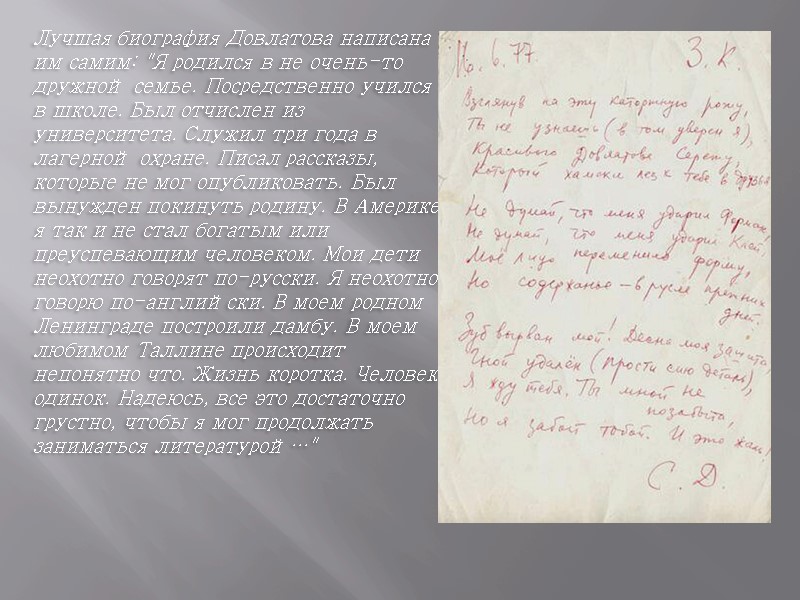 Лучшая биография Довлатова написана
им самим: "Я родился в не очень-то
дружной семье. Посредственно учился
в школе. Был отчислен из
университета. Служил три года в
лагерной охране. Писал рассказы,
которые не мог опубликовать. Был
вынужден покинуть родину. В Америке
я так и не стал богатым или
преуспевающим человеком. Мои дети
неохотно говорят по-русски. Я неохотно
говорю по-английски. В моем родном
Ленинграде построили дамбу. В моем
любимом Таллине происходит
непонятно что. Жизнь коротка. Человек
одинок. Надеюсь, все это достаточно
грустно, чтобы я мог продолжать
заниматься литературой …"
16.6.77. З.К.
Взглянув на эту каторжную рожу,
Ты не узнаешь (в том уверен я),
Красивого Довлатова Сережу,
Который хамски лез к тебе в друзья
Не думай, что меня ударил
Не думай, что меня ударил
Моё лицо переменило форму,
Но содержанье — в русле прежних
дней.
Зуб вырван мой! Десна моя зашита,
Гной удалён (прости сию деталь),
Я жду тебя. Ты мной не
позабыта,
Но я забыт тобой. И это жаль!
С.Д.